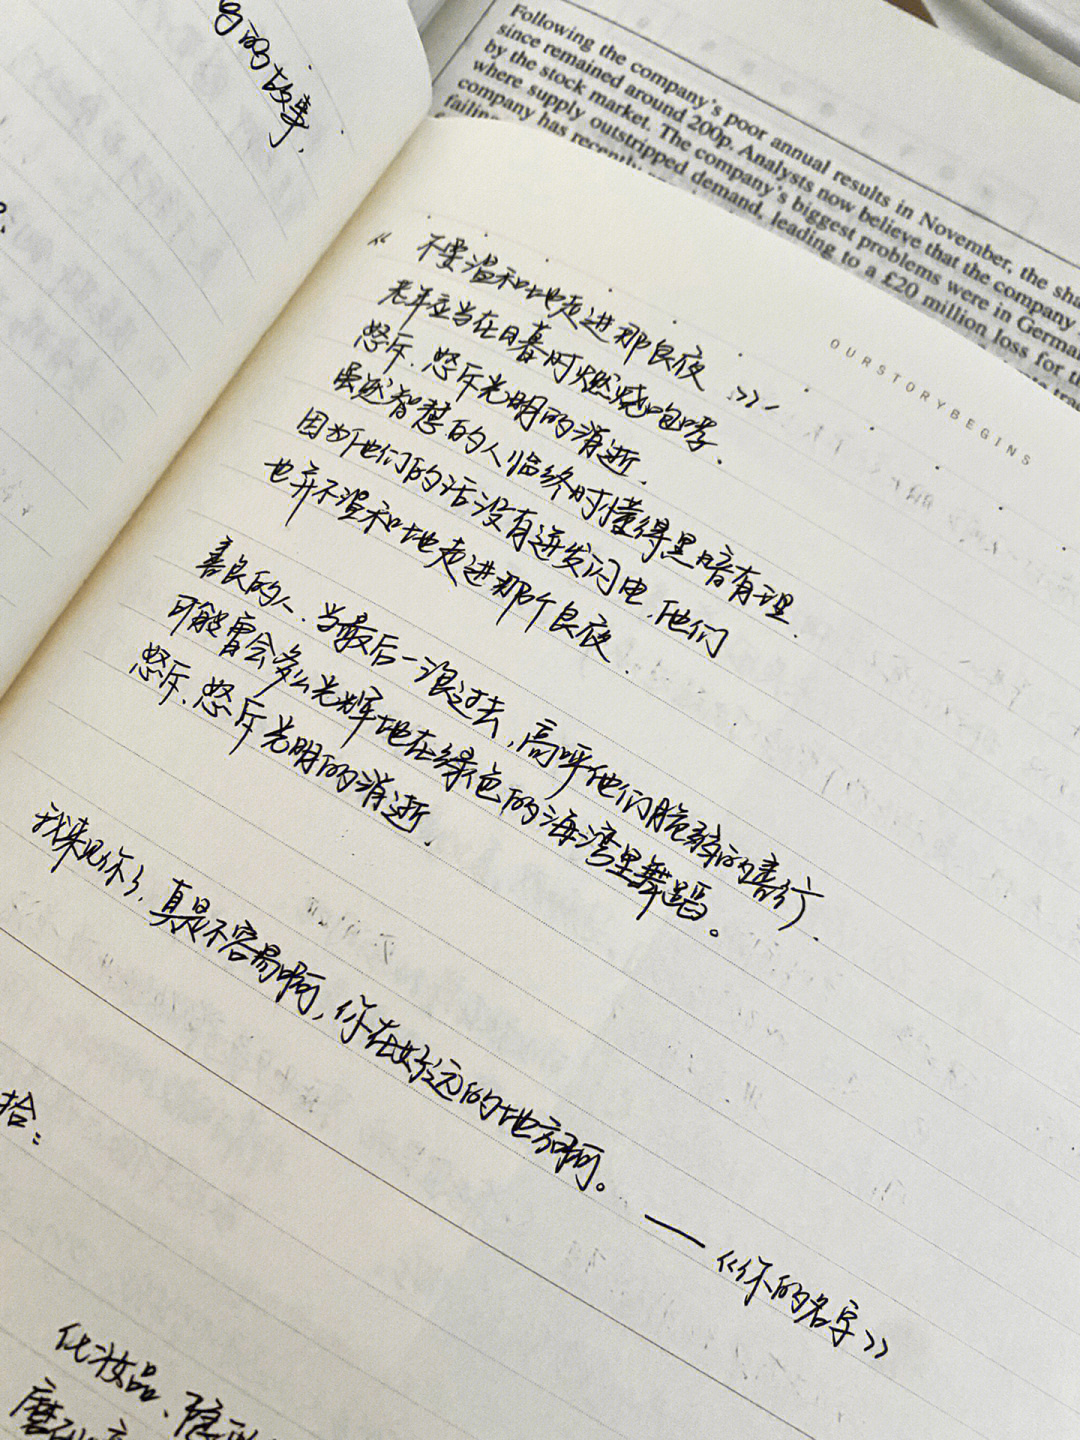 的故事,
Following the company's poor annual results in November, the sha
since remained around 200p. Analysts now believe that the company
by the stock market. The company's biggest problems were in German
where supply outstripped demand, leading to a £20 million loss for th
company has recently
failing
OURSTORYBEGINS
《不要温和地走进那良夜》
老年应当在日暮时燃烧咆哮.
怒斥、怒斥光明的消逝.
虽然智慧的人临终时懂得黑暗有理.
因为他们的话没有迸发闪电,他们
也并不温和地走进那个良夜.
善良的人、当最后一浪过去,高呼他们脆弱的善行
可能曾会多么光辉地在绿色的海湾里舞蹈。
怒斥、怒斥光明的消逝.
我来见你了,真是不容易啊,你在好远的地方啊。
——《你的名字》
拾:
化妆品、隐形
磨砂